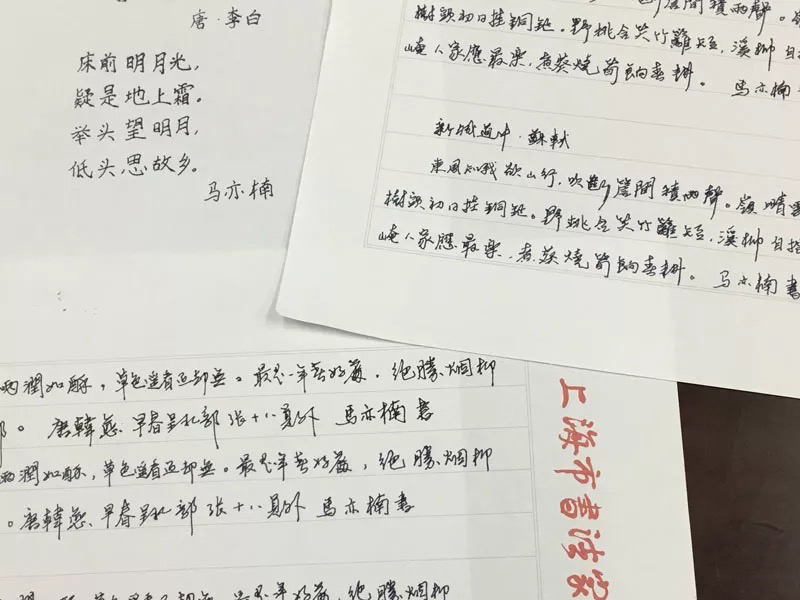 唐·李白
床前明月光，
疑是地上霜。
举头望明月，
低头思故乡。
马亦楠
崖間積雨聲。
樹頭初日挂銅鉦。野桃含笑竹籬短，溪柳自搖
崦人家應最樂，煮葵燒筍餉春耕。 馬亦楠
新城道中·蘇軾
東風知我欲山行，吹斷簷間積雨聲。嶺晴雲
樹頭初日挂銅鉦。野桃含笑竹籬短，溪柳自搖
崦人家應最樂，煮葵燒筍餉春耕。 馬亦楠書
雨潤如酥，草色遥看近却無。最是一年春好處，絕勝烟柳
。 唐韓愈 早春呈水部張十八員外 馬亦楠書
雨潤如酥，草色遥看近却無。最是一年春好處，絕勝烟柳
。唐韓愈、早春呈水部張十八員外 馬亦楠書
最是一年春好處，絕勝烟柳
上海市書法家